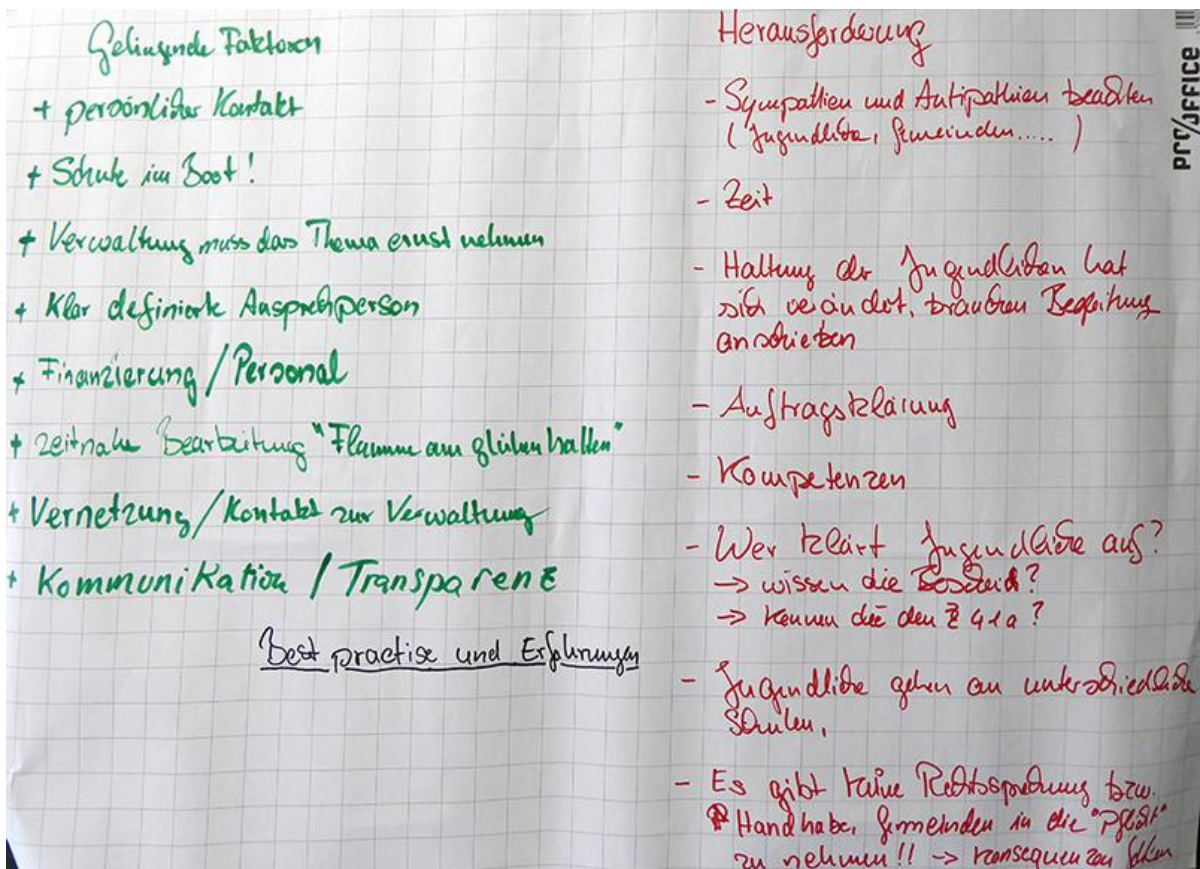 Gelingende Faktoren
+ persönlicher Kontakt
+ Schule im Boot!
+ Verwaltung muss das Thema ernst nehmen
+ Klar definierte Ansprechperson
+ Finanzierung / Personal
+ zeitnahe Bearbeitung "Flamme am glühen halten"
+ Vernetzung / Kontakt zur Verwaltung
+ Kommunikation / Transparenz
Best practise und Erfahrungen
Herausforderung
- Sympathien und Antipathien beachten
(Jugendliche, Gemeinden.....)
- Zeit
- Haltung der Jugendlichen hat
sich verändert, brauchen Begleitung
anschieben
- Auftragsklärung
- Kompetenzen
- Wer klärt Jugendliche auf?
-> wissen die Bescheid?
-> kennen die den § 41a?
- Jugendliche gehen an unterschiedliche
Schulen,
- Es gibt keine Rechtsprechung bzw.
Handhabe, Gemeinden in die "Pflicht"
zu nehmen!! -> Konsequenzen fehlen
pro/office